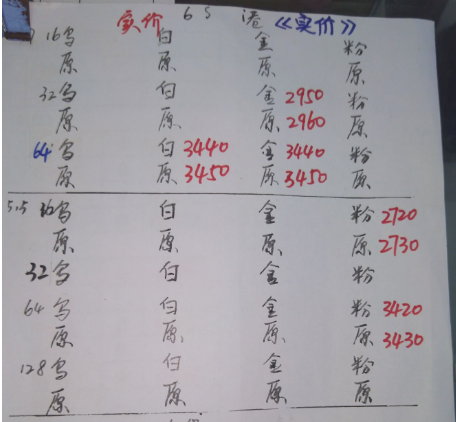 实价 6S 港 《实价》
16鸟 白 金 粉
原 原 原 原
32鸟 白 金 2950 粉
原 原 原 2960 原
64鸟 白 3440 金 3440 粉
原 原 3450 原 3450 原
5.5 16鸟 白 金 粉 2720
原 原 原 原 2730
32鸟 白 金 粉
64鸟 白 金 粉 3420
原 原 原 原 3430
128鸟 白 金 粉
原 原 原 原